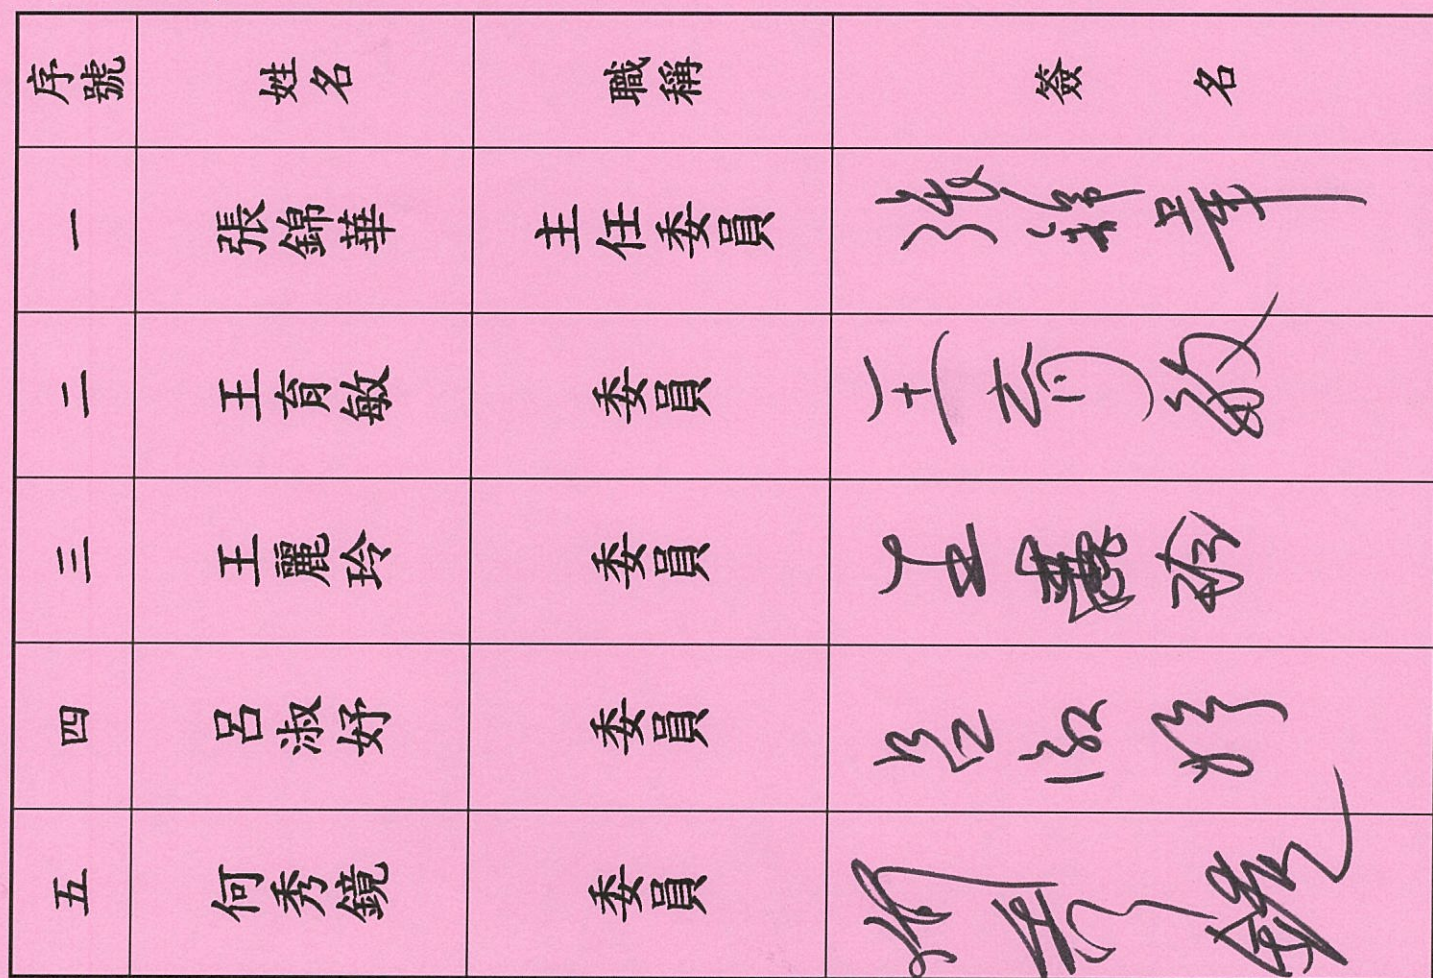 序號 姓名 職稱 簽名
一 張錦華 主任委員 張錦華
二 王育敏 委員 王育敏
三 王麗玲 委員 王麗玲
四 呂淑妤 委員 呂淑妤
五 何秀鏡 委員 何秀鏡